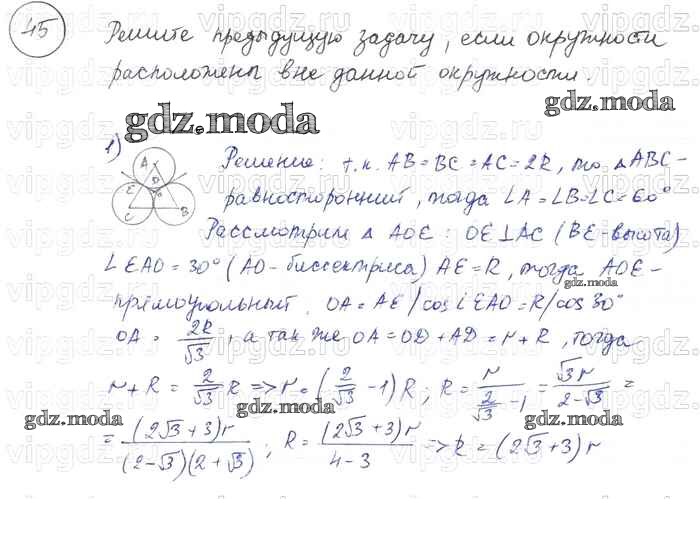 45
Решите предыдущую задачу, если окружности
расположены вне данной окружности.
gdz.moda
gdz.moda
1) Решение: т.к. AB = BC = AC = 2R, то ΔABC -
A
E
D
O
C
B
равносторонний, тогда ∠A = ∠B = ∠C = 60°
Рассмотрим Δ AOE: OE ⊥ AC (BE - высота)
∠EAO = 30° (AO - биссектриса) AE = R, тогда AOE -
gdz.moda
прямоугольный. OA = AE / cos∠EAO = R / cos 30°
OA = 2R/√3, а так же OA = OD + AD = r + R, тогда
r + R = 2/√3 R => r = (2/√3 - 1) R; R = r/(2/√3 - 1) = √3r/(2 - √3) =
gdz.moda
gdz.moda
gdz.moda
= (2√3 + 3)r/((2 - √3)(2 + √3)); R = (2√3 + 3)r/(4 - 3) => R = (2√3 + 3)r